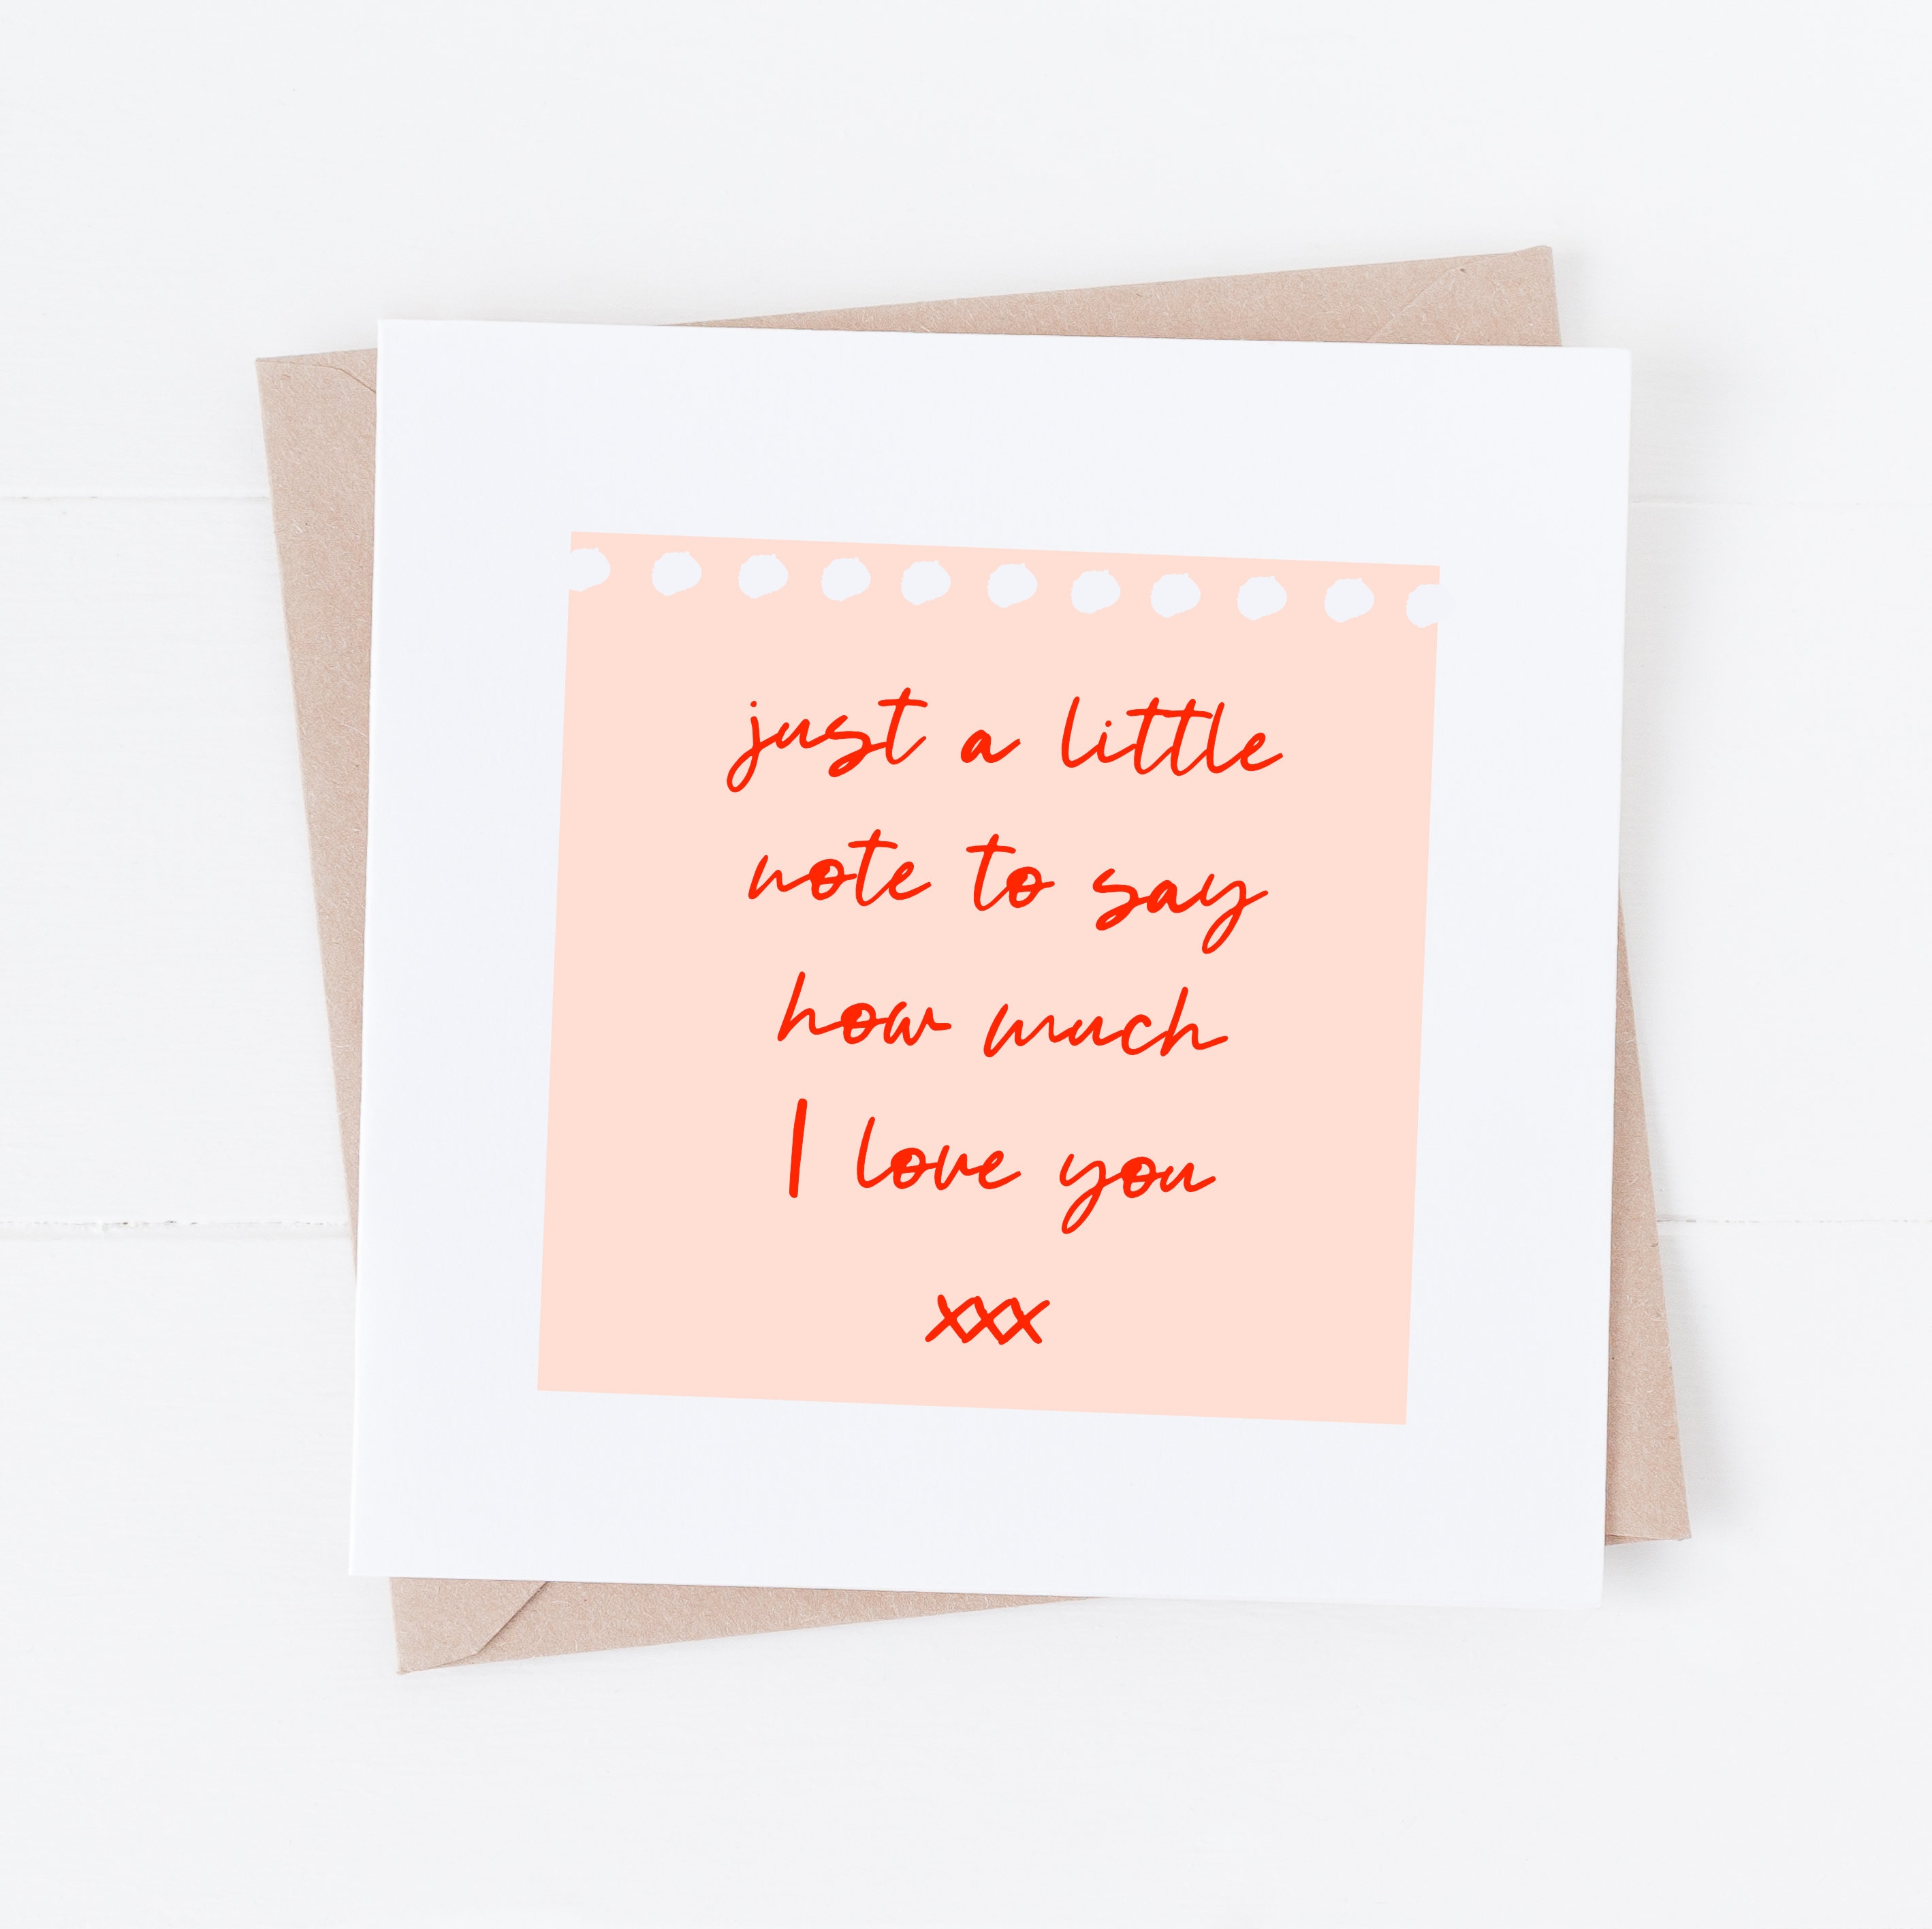 just a little
note to say
how much
I love you
xxx